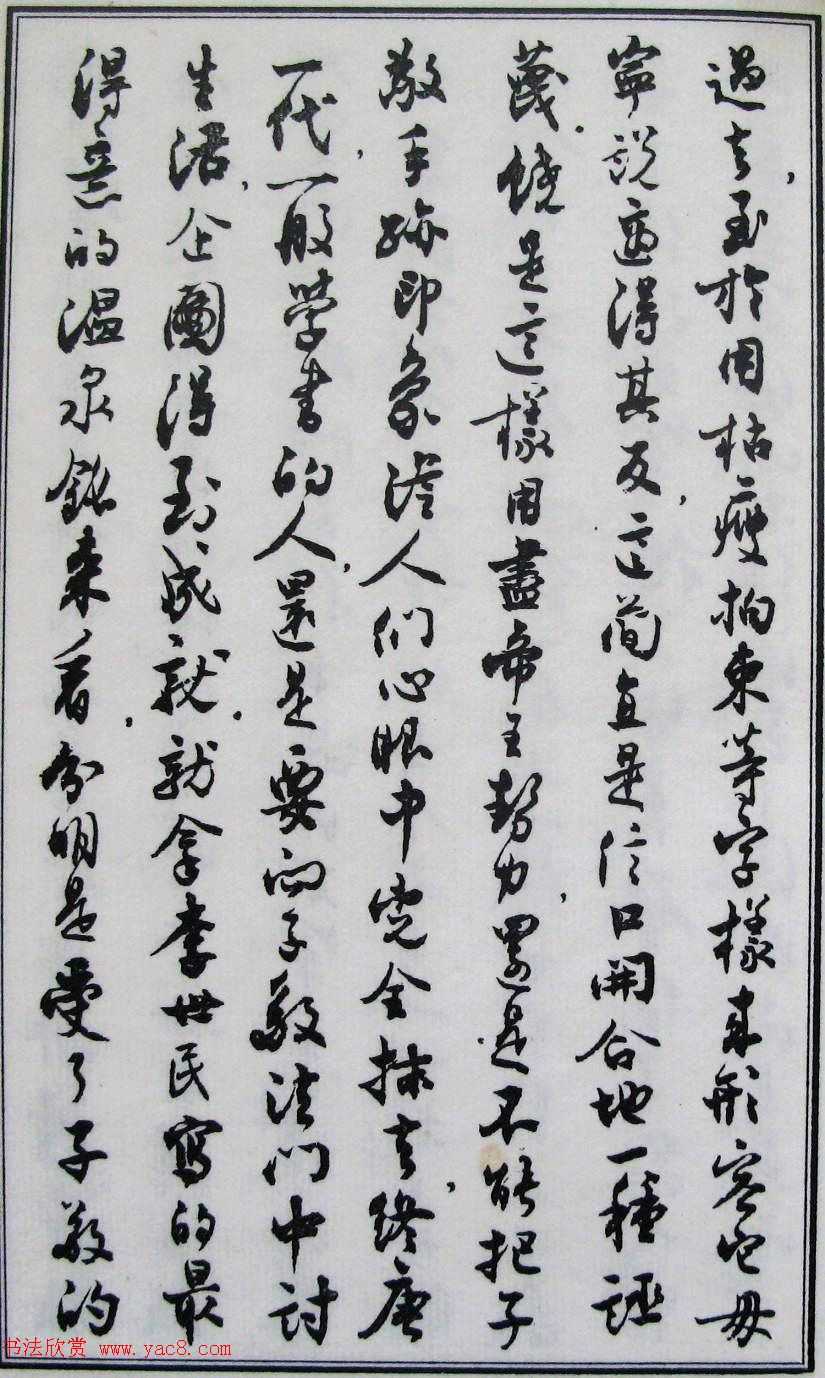 過去,至於用枯瘦拘束等字樣來形容它,毋
寧說適得其反,這簡直是信口開合地一種誣
蔑。饒是這樣用盡帝王勢力,還是不能把子
敬手跡印象從人們心眼中完全抹去,終唐
一代,一般學書的人,還是要向子敬法門中討
生活,企圖得到成就。就拿李世民寫的最
得意的溫泉銘來看,分明是受了子敬的
书法欣赏 www.yac8.com